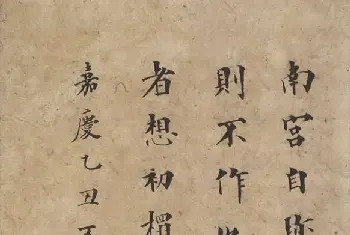 南宫自
則不作
者想初
嘉慶乙丑